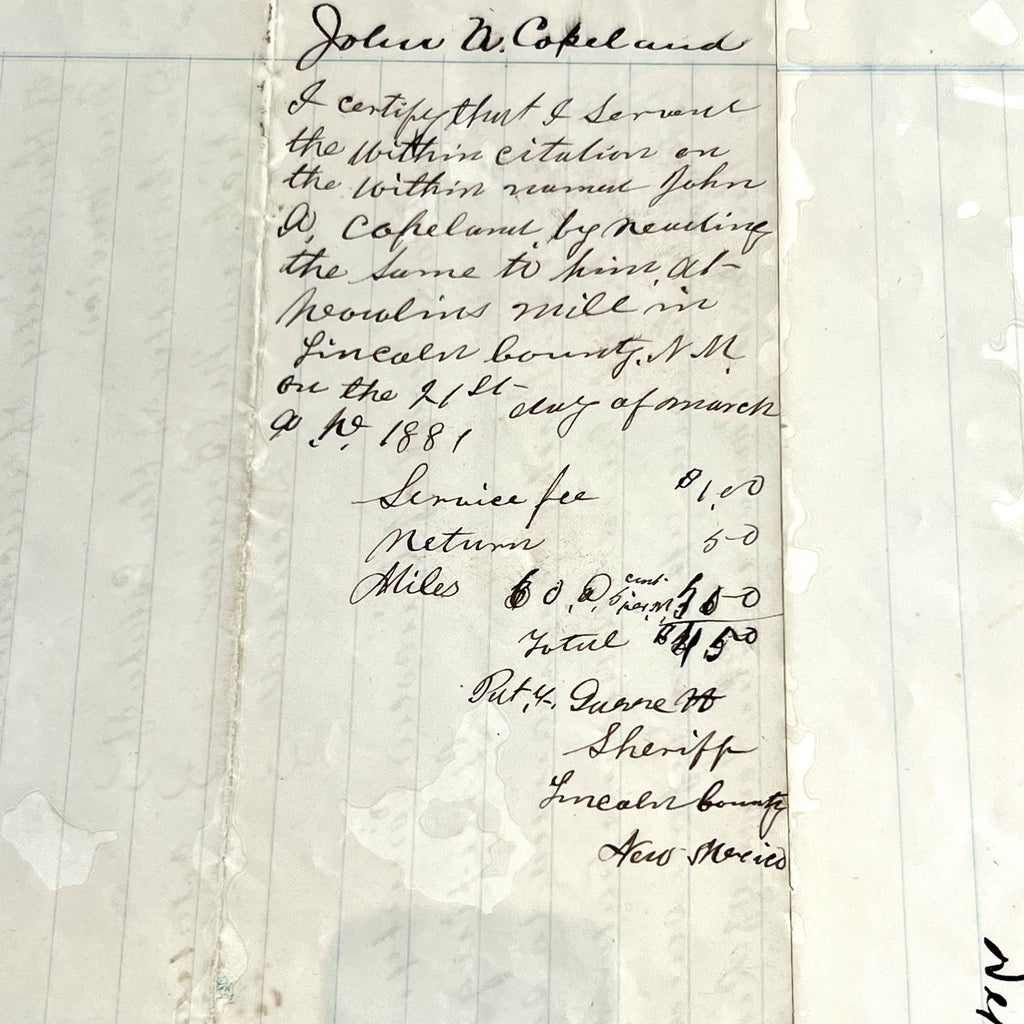 John N. Copeland
I certify that I served
the within citation on
the within named John
N. Copeland by reading
the same to him at
Dowlins mill in
Lincoln County, N.M.
on the 21st day of march
A.D. 1881
Service fee $1.00
Return 50
Miles 60. @ 5 cent per M 3 00
Total $4 50
Pat. F. Garrett
Sheriff
Lincoln County
New Mexico